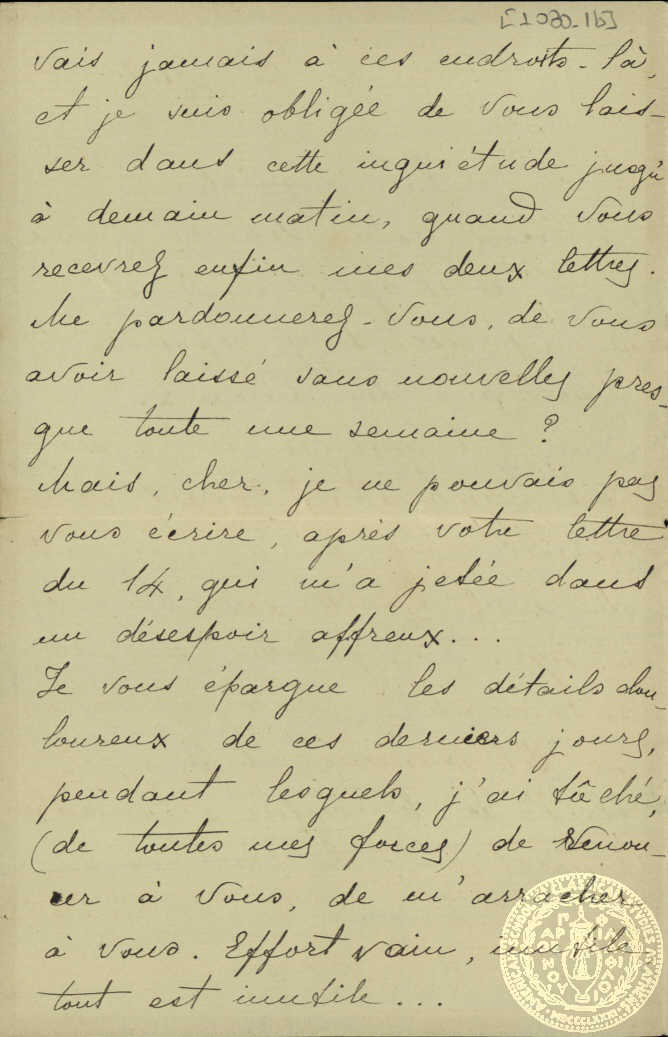 [1030-1b]
vais jamais à ces endroits-là,
et je suis obligée de vous lais-
ser dans cette inquiétude jusqu'
à demain matin, quand vous
recevrez enfin mes deux lettres.
Me pardonnerez-vous, de vous
avoir laissé sans nouvelles pres-
que toute une semaine ?
Mais, cher, je ne pouvais pas
vous écrire, après votre lettre
du 14, qui m'a jetée dans
un désespoir affreux...
Je vous épargne les détails dou-
loureux de ces derniers jours,
pendant lesquels, j'ai tâché,
(de toutes mes forces) de renon-
cer à vous, de m'arracher
à vous. Effort vain, inutile,
tout est inutile...